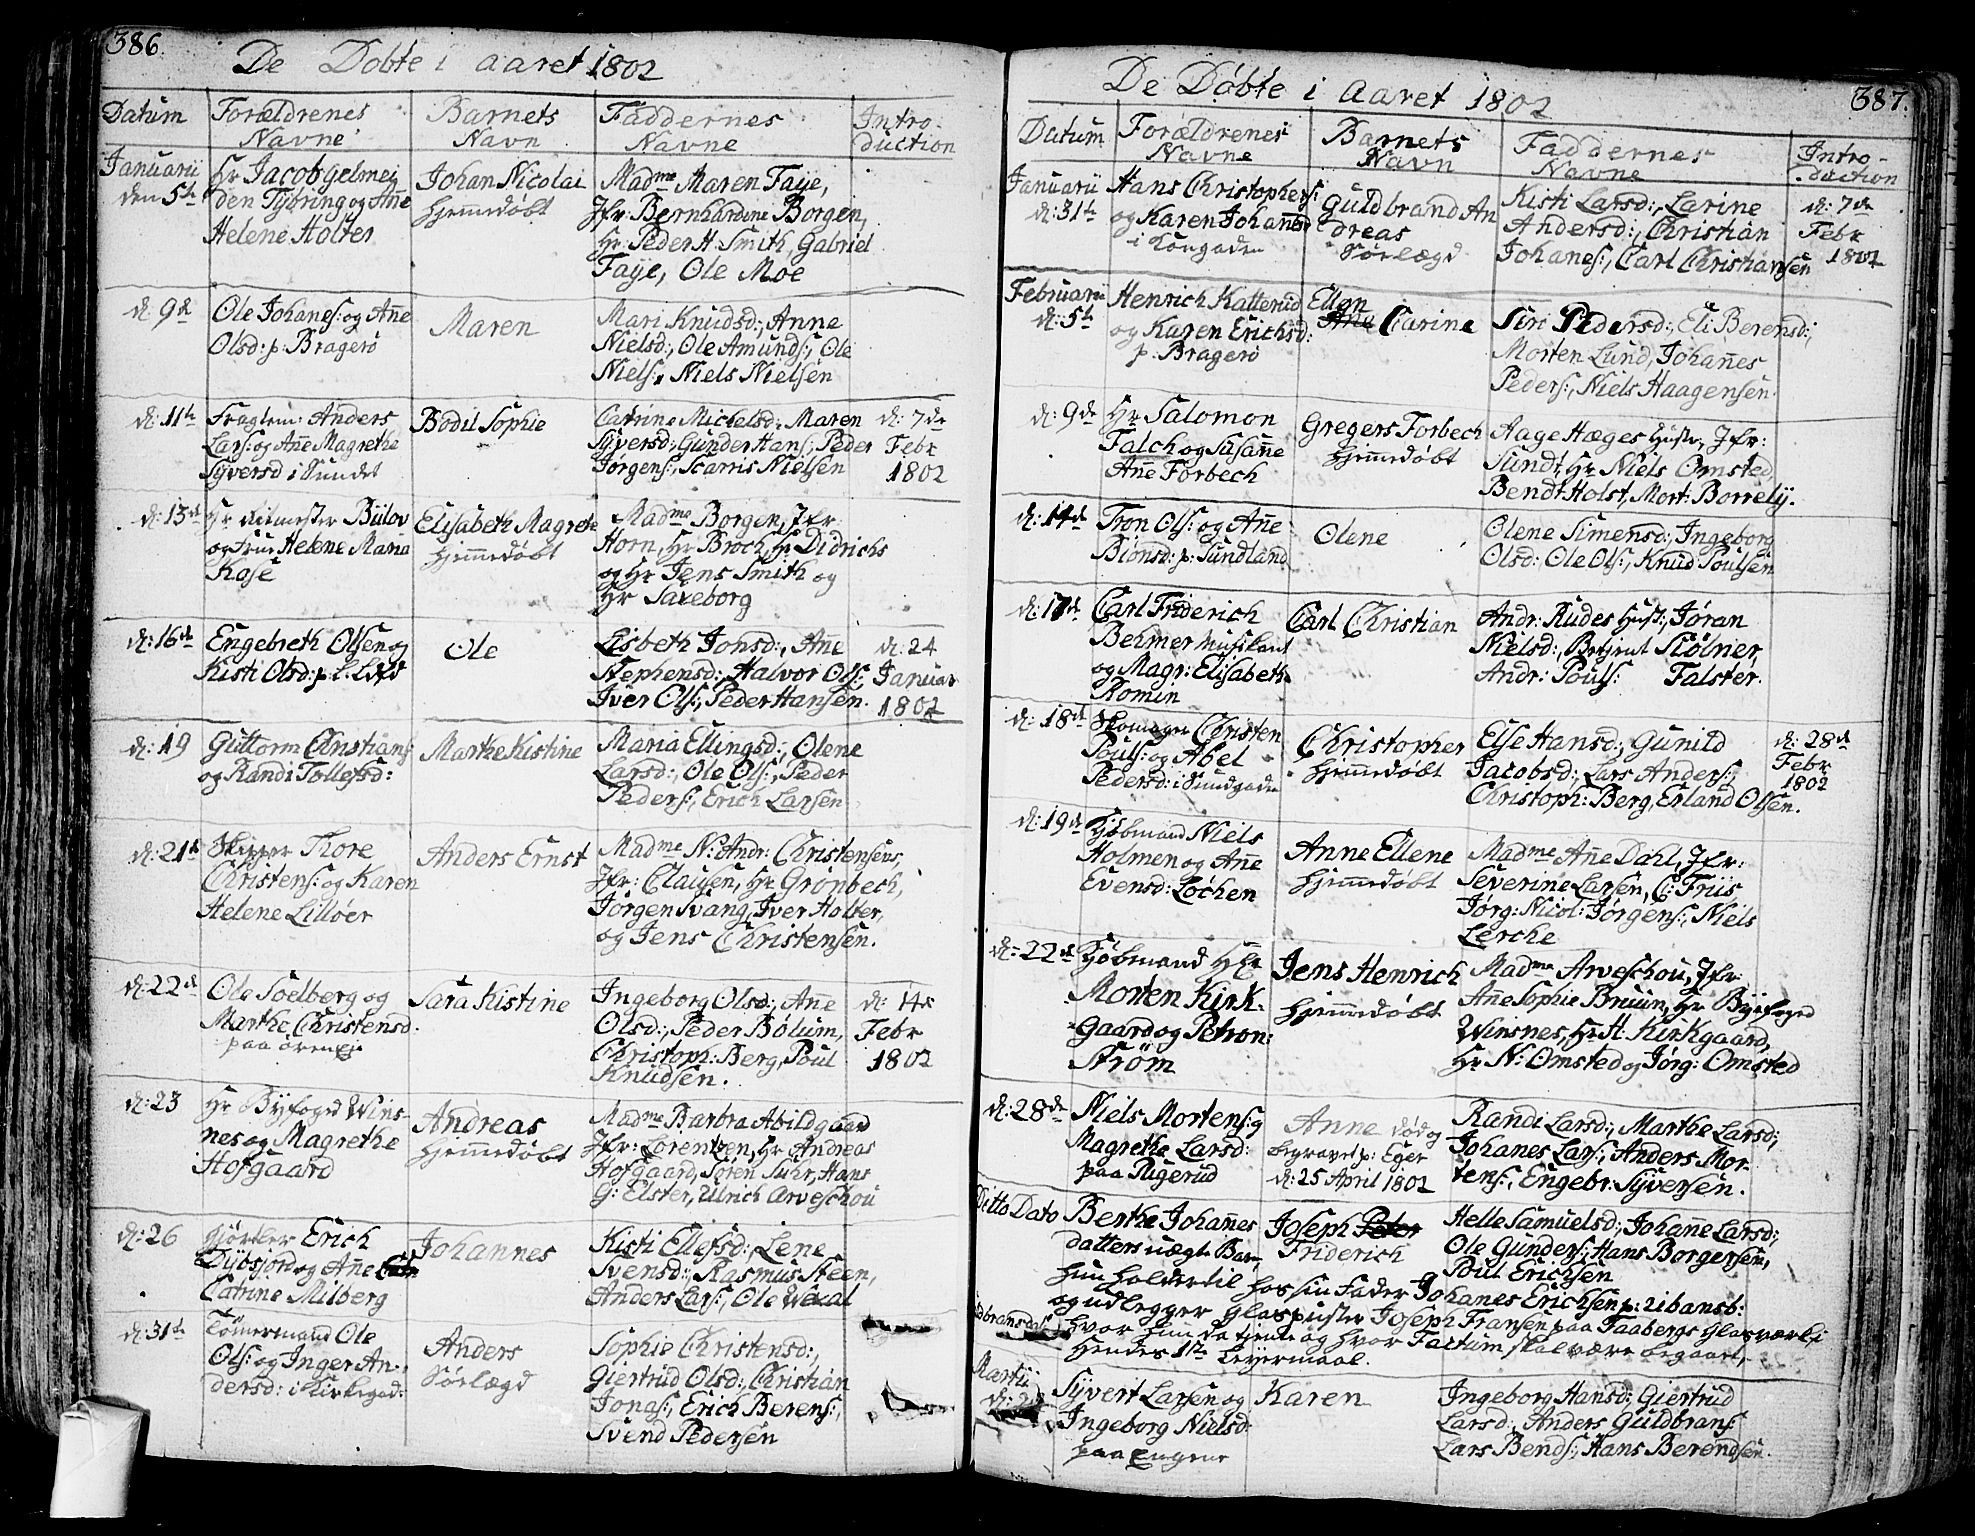 386.
De Dobte i aaret 1802
Datum
Forældrenes
Navne
Barnets
Navn
Faddernes
Navne
Intro-
duction
Januarii
den 5te
Hr Jacob Gelmei
den Tybring og Añe
Helene Holter
Johan Nicolai
hjemmedøbt
Madme Maren Faye,
Jfr: Bernhardine Borgen,
Hr Peder H Smith, Gabriel
Faye, Ole Moe
d: 9de
Ole Johanes: og Añe
Olsd: p: Bragerø
Maren
Mari Knudsd:, Anne
Nielsd:, Ole Amunds:, Ole
Niels:, Niels Nielsen
d: 11te
Anders
Lars: og Añe Magrethe
Syversd i Sundet
Bodil Sophie
Catrine Michelsd: Maren
Syversd:, Gunder Hans:, Peder
Jørgens:, Scarris Nielsen
d: 7de
Febr
1802
d: 13de
Hr Ritmester Bülov
og Frue Helene Maria
Kose
Elisabeth Magrete
hjemmedøbt
Madme Borgen, Jfr:
Horn, Hr Broch, Hr Didrichs
og Hr Jens Smith og
Hr Saxeborg
d: 16de
Engebreth Olsen og
Kisti Olsd: p:
Ole
Lisbeth Jonsd:, Añe
Stephensd:, Halvor Ols:,
Iver Ols:, Peder Hansen.
d: 24
Januar
1802
d: 19
Guttorm Christians:
og Randi Tollefsd:
Marthe Kistine
Maria Ellingsd:, Olene
Larsd:, Ole Ols:, Peder
Peders:, Erich Larsen
d: 21te
Skipper Thore
Christens: og Karen
Helene Lilløer
Anders Ernst
Madme N: Andr: Christensens,
Jfr: Clausen, Hr Grønbech,
Jørgen Svang, Iver Holter,
og Jens Christensen.
d: 22de
Ole Soelberg og
Marthe Christensd:
paa
Sara Kistine
Ingeborg Olsd:, Añe
Olsd:, Peder Bølum,
Christoph: Berg, Poul
Knudsen.
d: 14de
Febr
1802
d: 23
Hr Byfoged Wins-
nes og Magrethe
Hofgaard
Andreas
hjemmedøbt
Madme Barbra Abildgaard
Jfr: Lorentzen, Hr Andreas
Hofgaard, Søren Suhr, Hans
G: Elster, Ulrich Arveschou
d: 26
Erich
Dybsjord og Añe
Catrine Milberg
Johannes
Kisti Ellefsd:, Lene
Svensd:, Rasmus Steen,
Anders Lars:, Ole Wexal
d: 31te
Tømermand Ole
Ols: og Inger An-
dersd: i Kirkegad:
Anders
Sørlægd
Sophie Christensd:,
Giertrud Olsd:, Christian
Jonas:, Erich Berens:,
Svend Pedersen
387.
De Døbte i Aaret 1802
Datum
Forældrenes
Navne
Barnets
Navn
Faddernes
Navne
Intro-
duction
Januarii
d: 31te
Hans Christophers:
og Karen Johanesd
i Kongaden
Guldbrand An
dreas
Sørlægd
Kisti Larsd:, Larine
Andersd:, Christian
Johanes:, Carl Christiansen
d: 7de
Febr
1802
Februarii
d: 5te
Henrich Katterud
og Karen Erichsd:
p: Bragerø
Ellen
Ane Carine
Siri Pedersd:, Eli Berensd:,
Morten Lund, Johañes
Peders:, Niels Haagensen.
d: 9de
Hr Salomon
Falch og Susañe
Añe Forbech
Gregers Forbech
hjemmedøbt
Aage Hæges Hustr, Jfr:
Sundt, Hr Niels Omsted,
Bendt Holst, Mort: Borrely.
d: 14de
Tron Ols: og Añe
Biønsd: p: Sundland
Olene
Olene Simensd:, Ingeborg
Olsd:, Ole Ols:, Knud Poulsen
d: 17de
Carl Friderich
Behmer Musikant
og Magr: Elisabeth
Romin
Carl Christian
Andr: Rudes Hust:, Jøran
Nielsd:, Stølner
Andr: Pouls: Falster.
d: 18de
Skomager Christen
Pouls: og Abel
Pedersd: i Sundgaden
Christopher
hjemmedøbt
Else Hansd:, Gunild
Jacobsd:, Lars Anders:,
Christoph: Berg, Erland Olsen.
d: 28de
Febr
1802
d: 19de
Kjøbmand Niels
Holmen og Añe
Evensd: Løchen
Anne Ellene
hjemmedøbt
Madme Añe Dahl, Jfr:
Severine Larsen, C: Friis
Jørg: Nicol: Jørgens:, Niels
Lerche
d: 22de
Kjøbmand Hr
Morten Kirk-
gaard og Petron:
Strøm
Jens Henrich
hjemmedøbt
Madme Arveschou, Jfr:
Añe Sophie Bruun, Hr Byefoged
Winsnes, Hr H. Kirkgaard,
Hr N: Omsted og Jørg: Omsted
d: 28de
Niels Mortens: og
Magrethe Larsd:
paa Rigerud
Anne død og
begravet p: Eger
d: 25 April 1802
Randi Larsd:, Marthe Larsd:,
Johanes Lars:, Anders Mor-
tens:, Engebr: Syversen.
Ditto Dato
Berthe Johañes
datters uægte Barn,
Joseph Peter
Friderich
Helle Samuelsd:, Johañe Larsd:,
Ole Gunders:, Hans Borgersen,
Poul Erichsen
hun holder til hos sin Fader Johanes Erichsen p:
og udlegger Glaspuster Joseph Fransen paa Faabergs Glasværk i
hvor hun da tjente og hvor Factum skal være begaaet,
Hendes 1ste Leyermaal.
Martii
Syvert Larsen og
Ingeborg Nielsd:
paa
Karen
Ingeborg Hansd:, Giertrud
Larsd:, Anders Guldbrans:
Lars Bends:, Hans Berendsen.